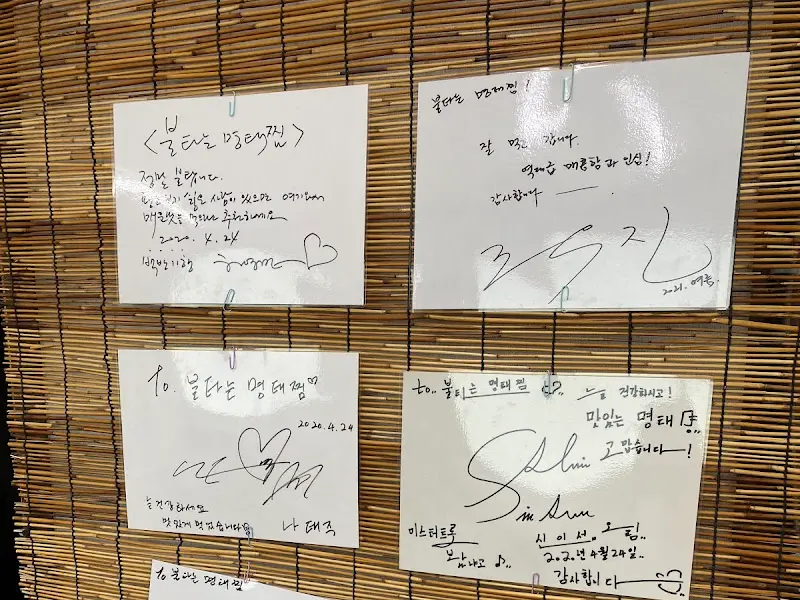 <불타는 명태찜>
정말 불탑니다.
싶은 사람이 있으면 여기와서
매운맛을 추천하세요
2020. 4. 24
백반기행
불타는 명태찜!
잘 먹고 갑니다.
역대급 매콤함과 인심!
감사합니다
2021. 여름.
To. 불타는 명태찜
2020.4.24
늘 건강하세요
맛있게 먹었습니다
나태주
to.. 불타는 명태찜
늘 건강하시고!
맛있는 명태찜..
고맙습니다!
Shin
Sin Sun
미스터트롯
신이서.. 오림..
2020년 4월 24일..
감사합니다
to 불타는 명태찜